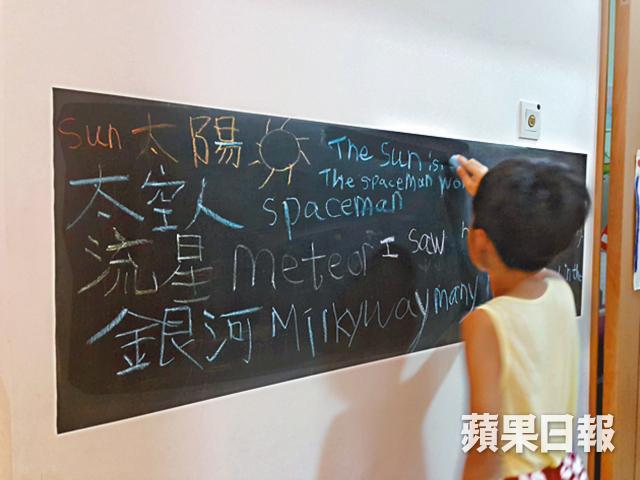 sun 太陽 The Sun is
The spaceman wo
太空人 spaceman
流星 meteor I saw
銀河 Milkyway many in the
蘋果日報